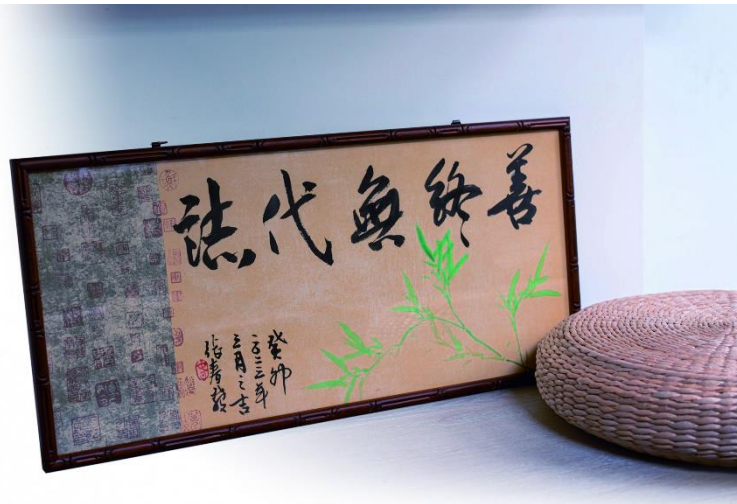 善終無代誌
癸卯
二〇二三年
三月之吉
張春